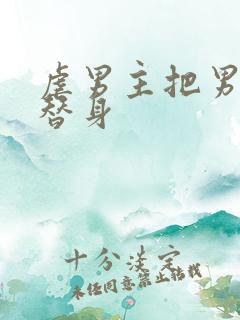 虐男主把男
替身
十分淡定
未经同意禁止转载